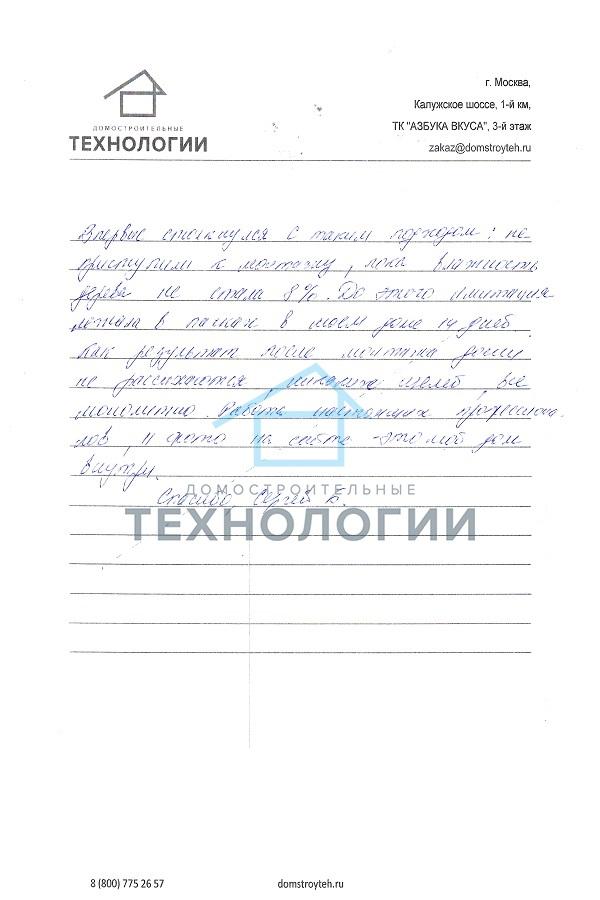 ДОМОСТРОИТЕЛЬНЫЕ
ТЕХНОЛОГИИ
г. Москва,
Калужское шоссе, 1-й км,
ТК "АЗБУКА ВКУСА", 3-й этаж
zakaz@domstroyteh.ru
Впервые столкнулся с таким подходом: не
приступили к монтажу, пока влажность
дерева не стала 8%. До этого имитация
лежала в пачках в моем доме 14 дней.
Как результат после монтажа доски
не рассыхаются, никаких щелей, все
монолитно. Работа настоящих профессиона
лов, 11 фото на сайте - это мой дом
внутри.
Спасибо Сергей К.
ДОМОСТРОИТЕЛЬНЫЕ
ТЕХНОЛОГИИ
8 (800) 775 26 57
domstroyteh.ru